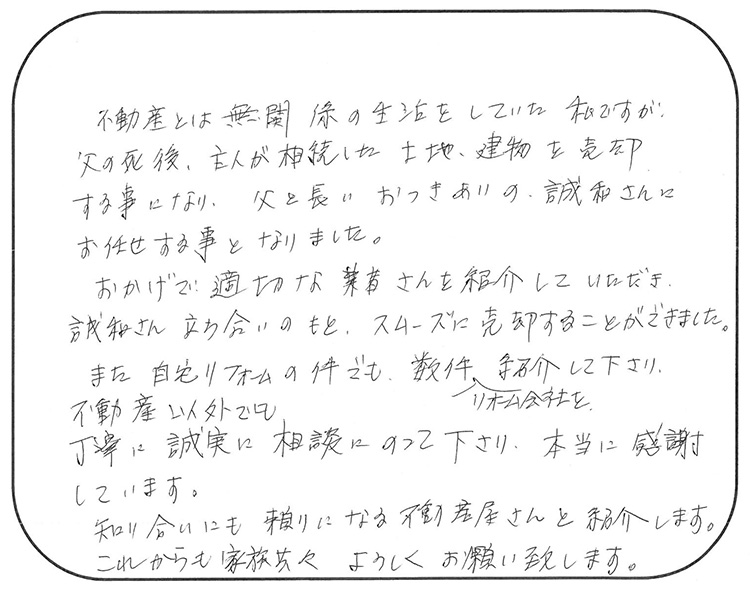 不動産とは無関係の生活をしていた私ですが、
父の死後、主人が相続した土地、建物を売却
する事になり、父と長いおつきあいの、誠和さんに
お任せする事となりました。
おかげで適切な業者さんを紹介していただき、
誠和さん立ち合いのもと、スムーズに売却することができました。
また自宅リフォームの件でも、数件、紹介して下さり、
リホーム会社を
不動産以外でも
丁寧に誠実に相談にのって下さり、本当に感謝
しています。
知り合いにも頼りになる不動産屋さんと紹介します。
これからも家族共々よろしくお願い致します。